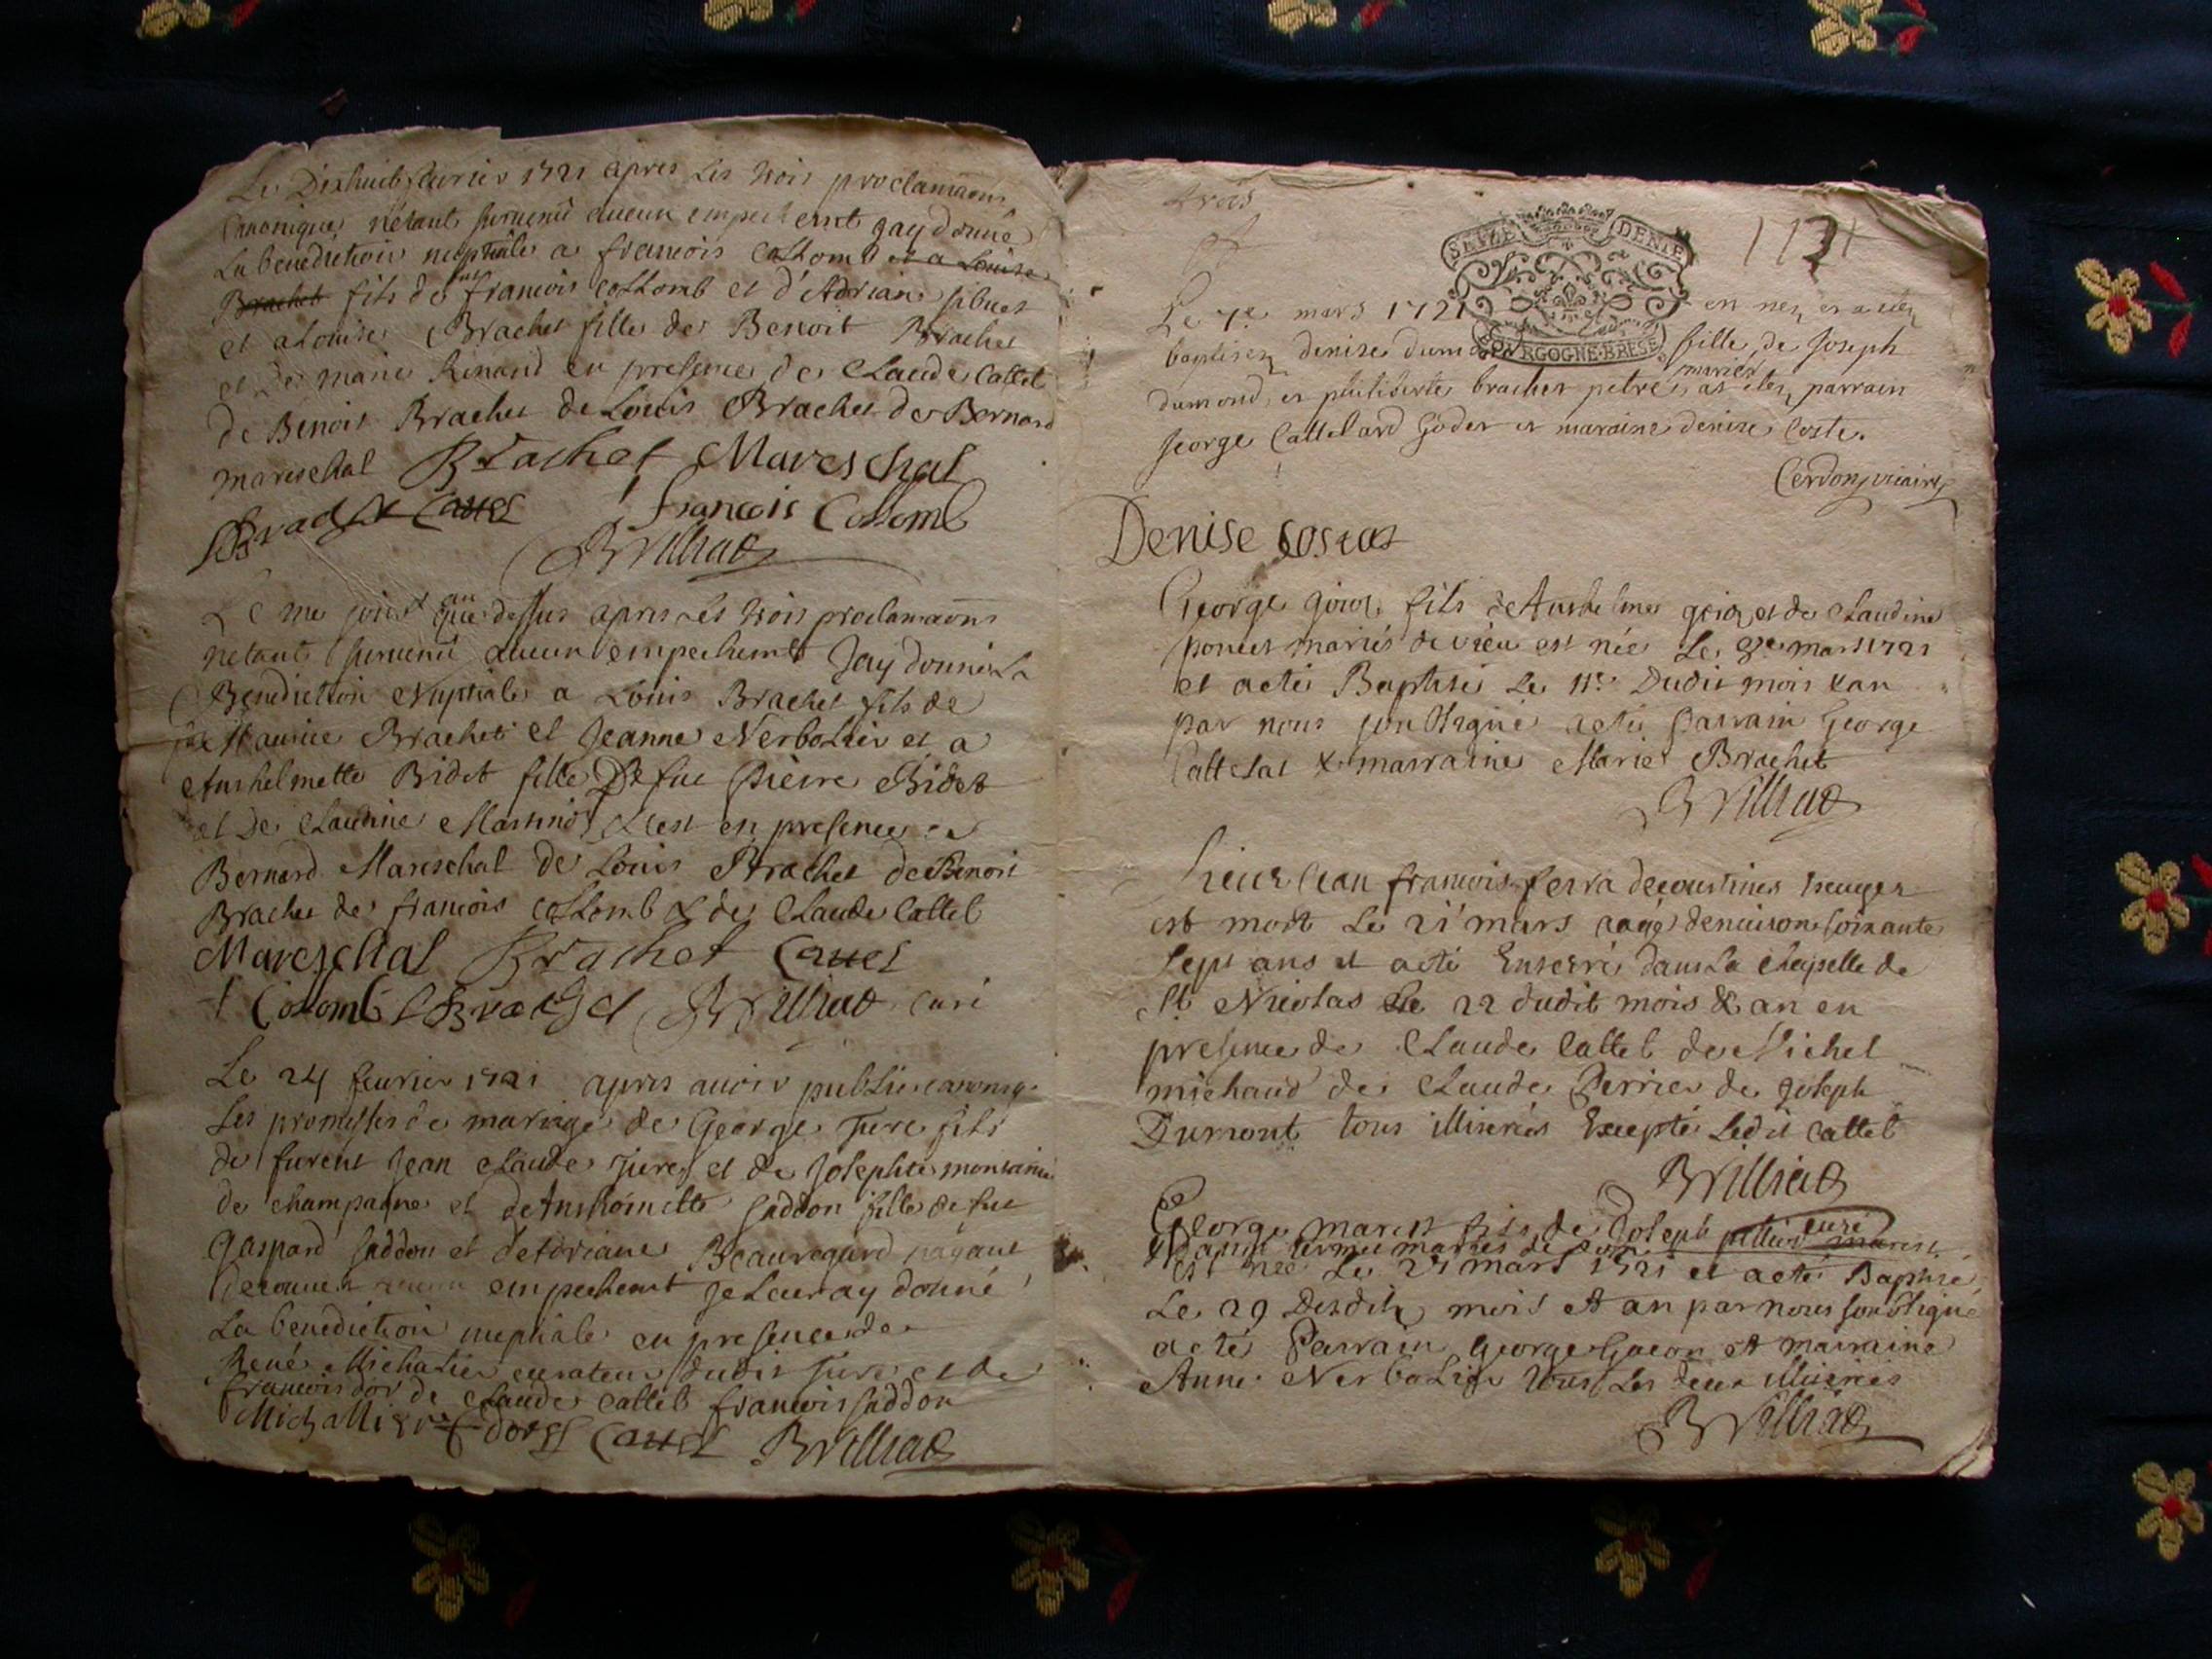 Le Dixhuit feurier 1721 apres Les trois proclamaons
Canonique n'étant suruenû aucun empechemt jay donné
La benediction nuptiale a francois Collomb et a Louise
Brachet fils de fut francois Collomb et d'Adriane sibuet
et a Louise Brachet fille de Benoit Brachet
et De marie Renard en presence de Claude Cattel
de Benoit Brachet de Louis Brachet de Bernard
mareschal Brachet Mareschal
Brachet Cattel francois Collomb
Brilliat
Le me jour que au dessus apres les trois proclamaons
netant suruenû aucun empechemt Jay donné La
Benediction Nuptiale a Louis Brachet fils de
Maurice Brachet et Jeanne Nerbollier et a
Anthelmette Bidet fille De fue Pierre Bidet
et De Claudine Martinod C'est en presence de
Bernard Mareschal de Louis Brachet de Benoit
Brachet de francois Collomb & de Claude Cattel
Mareschal Brachet Cattel
f Collomb Brachet Brilliat curé
Le 24 feurier 1721 apres auoir publié canoniq.
Les promesses de mariage de George Jure fils
de furent Jean Claude Jure et de Josephte
de champagne et de Anthoinette Saddon fille de fut
Gaspard Saddon et de Adriane Beauregard nayant
decouuert aucun empechemt Je Leur ay donné
La benediction nuptiale en presence de
René Michallier curateur dudit Jure et de
francois dor de Claude Cattel francois Saddon
Michallier f dor Cattel Brilliat
trois
1721
SEIZE DENIE
BOURGOGNE·BRESSE
Le 7e mars 1721 en nez et a etez
baptisez denise dumond fille de Joseph
dumond et philiberte brachet petre mariez as etez parrain
george Cattelard Goder et maraine denise Coste.
Cerdon vicaire
Denise costaz
George goiox fils de Anthelme goiox et de Claudine
poncet mariés de vieu est née Le 9e mars 1721
et a eté Baptisé Le 11e Dudit mois & an
par nous soubsigné a eté Parrain George
Cattelat & marraine Marie Brachet
Brilliat
Sieur Jean francois ferra de courtines
est mort Le 21 mars aagé denuiron soixante
sept ans et a eté Enterré dans la chapelle de
St Nicolas Le 22 dudit mois & an en
presence de Claude Cattel de Michel
michaud de Claude Perrier de Joseph
Dumont tous illiterés Excepté Ledit Cattel
Brilliat
curé
George marest fils de Joseph marest
mariés de
est née Le 27 mars 1721 et a eté Baptisé
Le 29 Desdits mois & an par nous soubsigné
a eté Parrain George et marraine
Anne Nerbollier tous Les deux illiterés
Brilliat